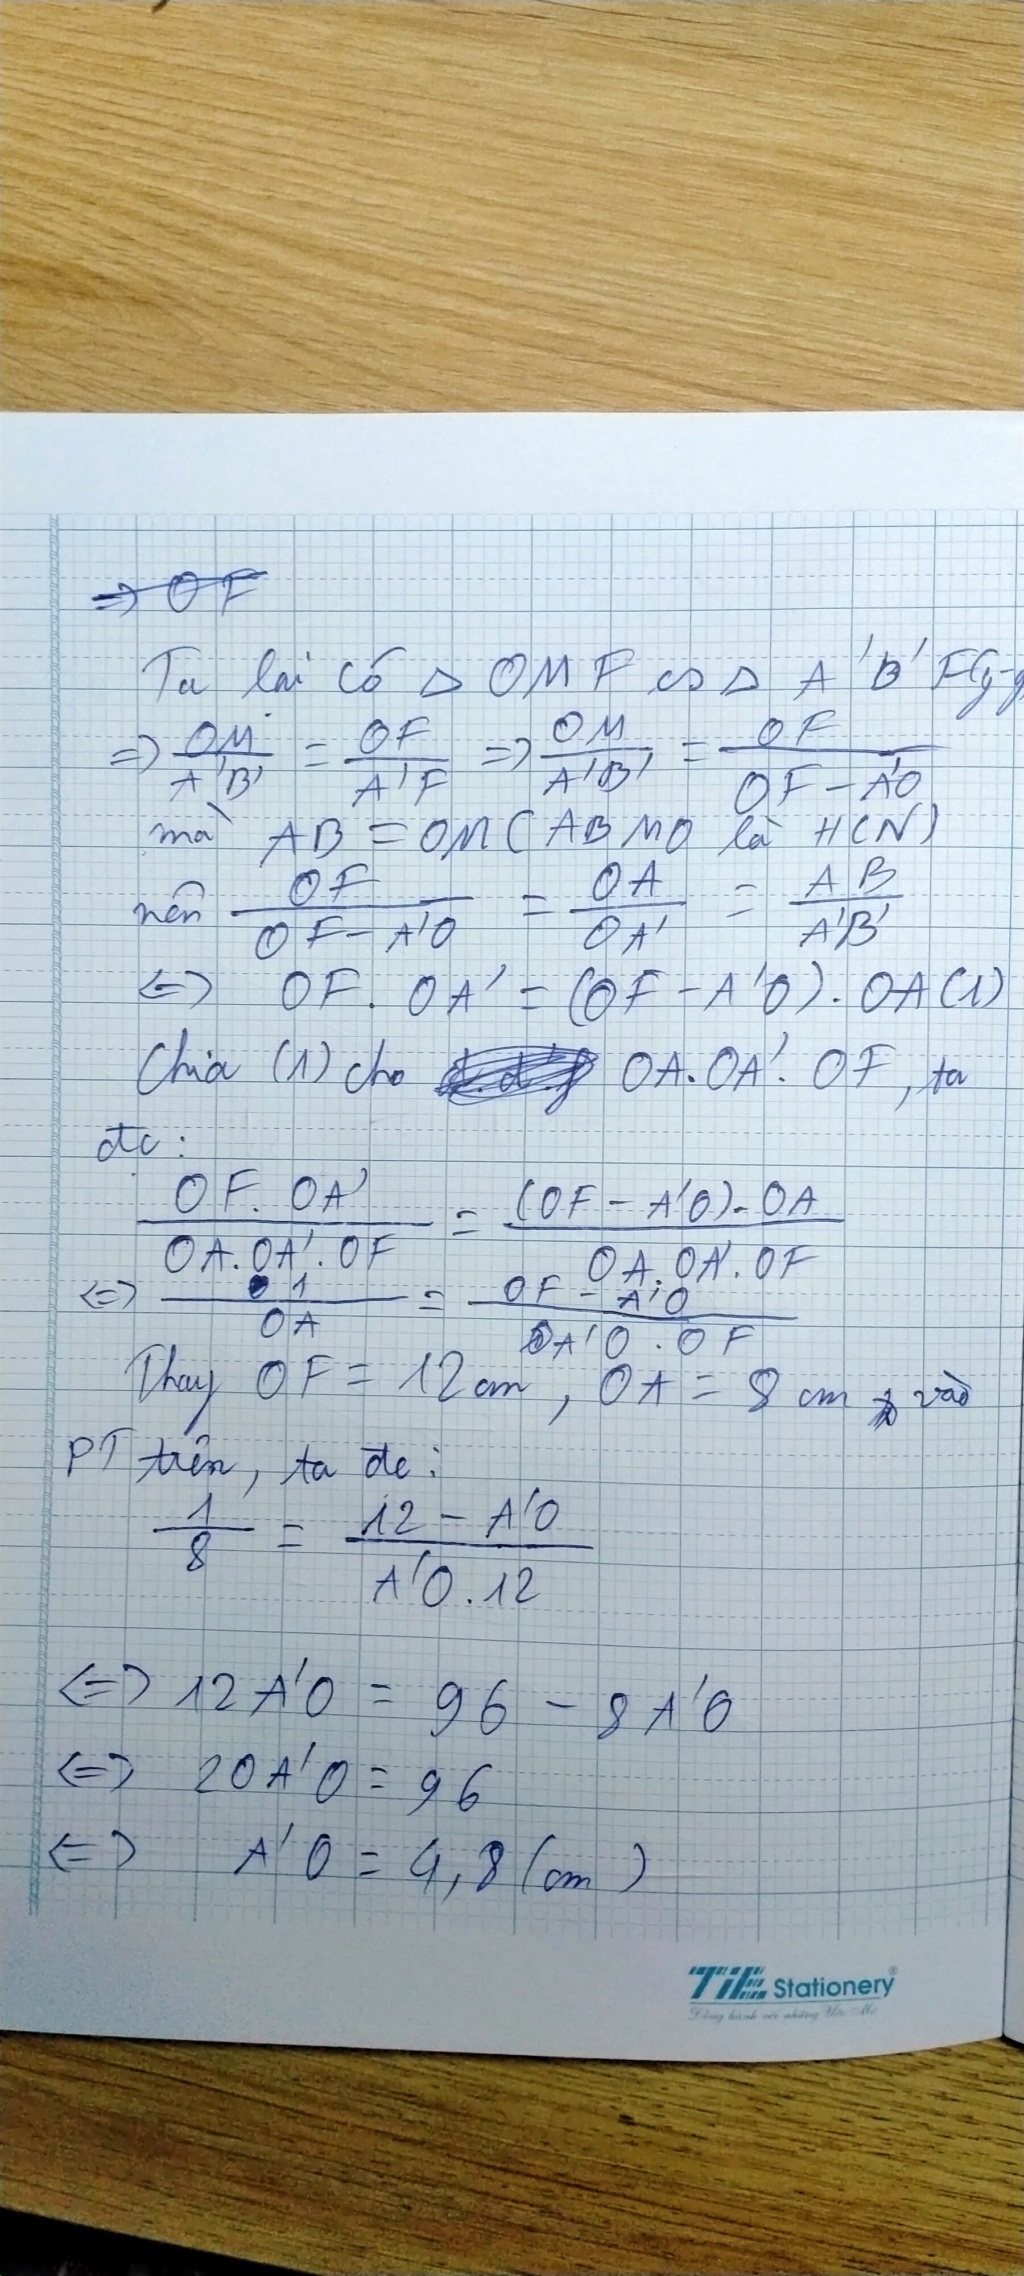 ⇒ OF
Ta lại có △ OMF ∽ △ A'B'F(g-g
⇒ OM/A'B' = OF/A'F ⇒ OM/A'B' = OF/(OF - A'O)
mà AB = OM (ABMO là HCN)
nên OF/(OF - A'O) = OA/OA' = AB/A'B'
⇔ OF. OA' = (OF - A'O). OA (1)
Chia (1) cho OA.OA'. OF, ta
đc:
(OF. OA')/(OA.OA'.OF) = ((OF - A'O). OA)/(OA.OA'.OF)
⇔ 1/OA = (OF - A'O)/(A'O . OF)
Thay OF = 12 cm, OA = 8 cm vào
PT trên, ta đc:
1/8 = (12 - A'O)/(A'O.12)
⇔ 12A'O = 96 - 8A'O
⇔ 20A'O = 96
⇔ A'O = 4,8 (cm)
TiE Stationery®
Đồng hành với những Ước Mơ